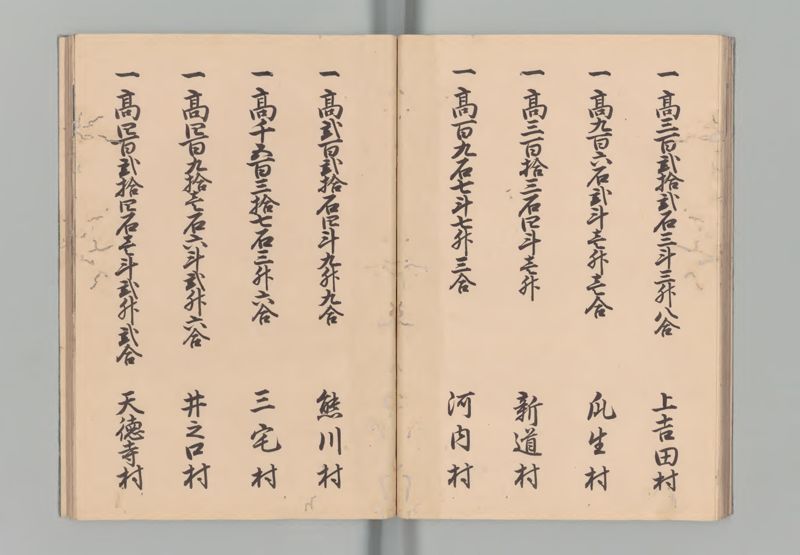 一 高三百弐拾弐石三斗三升八合 上吉田村
一 高九百六石弐斗壱升壱合 瓜生村
一 高三百拾三石四斗壱升 新道村
一 高百九石七斗七升三合 河内村
一 高弐百弐拾石四斗九升九合 熊川村
一 高千五百三拾七石三升六合 三宅村
一 高四百九拾壱石六斗弐升六合 井之口村
一 高四百弐拾四石壱斗弐升弐合 天徳寺村